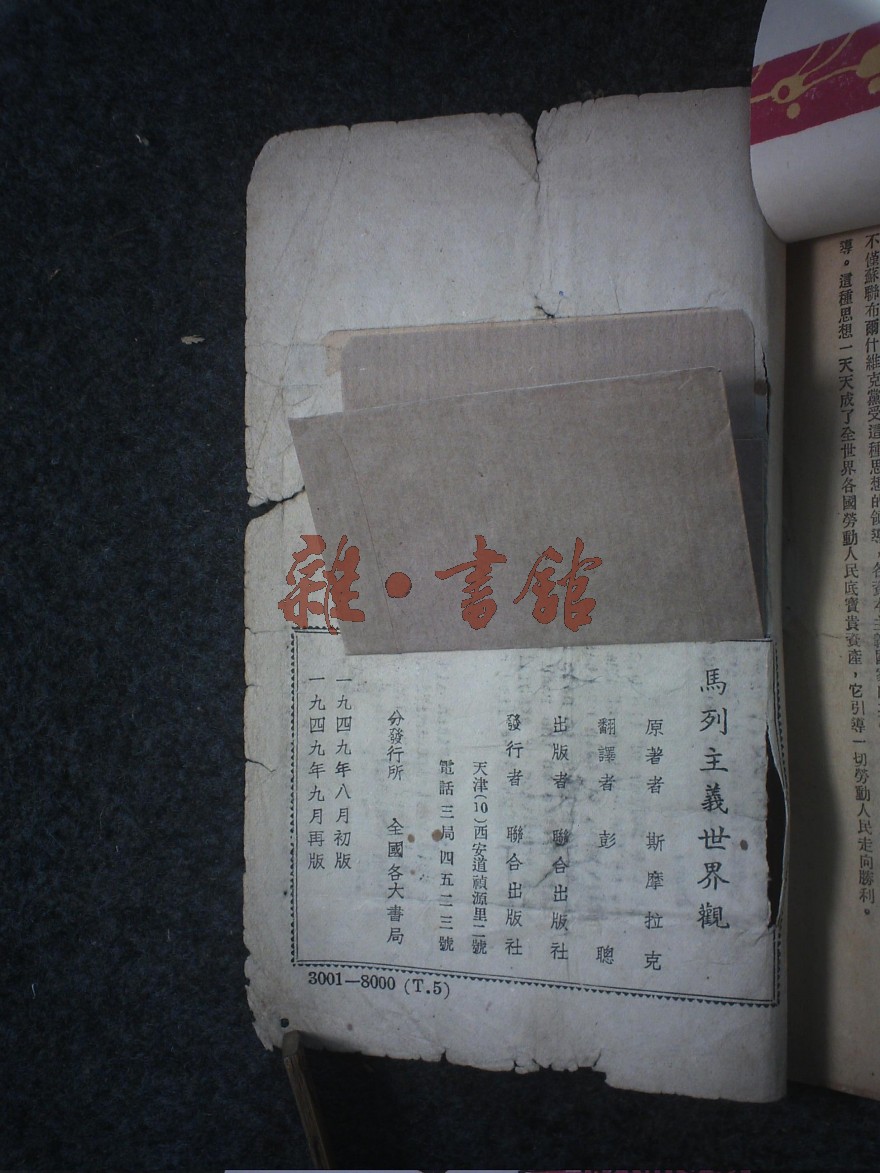 不僅蘇聯布爾什維克黨受這種思想的領導，各資本主義國家
導。這種思想一天天成了全世界各國勞動人民底寶貴資產，它引導一切勞動人民走向勝利。
馬列主義世界觀
原著者 斯摩拉克
翻譯者 彭聰
出版者 聯合出版社
發行者 聯合出版社
天津(10)西安道禎源里二號
電話三局四五二三號
分發行所 全國各大書局
一九四九年八月初版
一九四九年九月再版
3001—8000 (T.5)
雜·書館